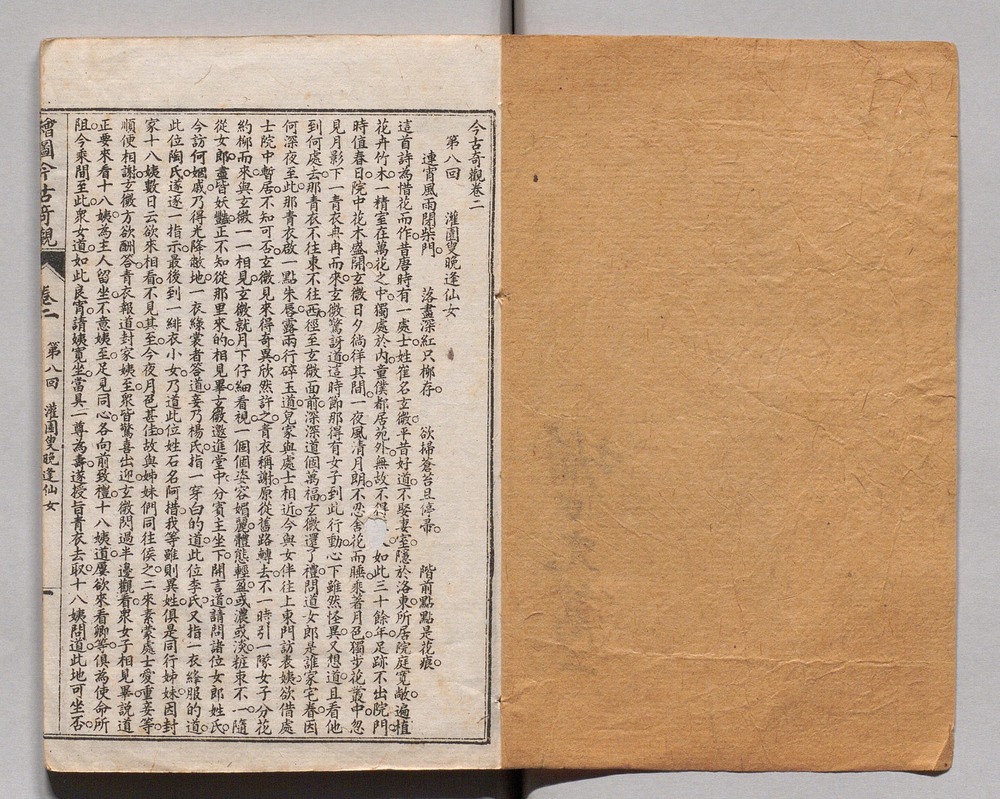 今古奇觀卷二
第八回 灌園叟晚逢仙女
連宵風雨閉柴門 落盡深紅只柳存 欲掃蒼苔且停帚 階前點點是花痕
這首詩為惜花而作昔唐時有一處士姓崔名玄微平昔好道不娶妻室隱於洛東所居院庭寬敞遍植
花卉竹木一精室在萬花之中獨處於內童僕都居苑外無故不得 如此三十餘年足跡不出院門
時值春日院中花木盛開玄微日夕徜徉其間一夜風清月朗不忍舍花而睡乘著月色獨步花叢中忽
見月影下一青衣冉冉而來玄微驚訝道這時節那得有女子到此行動心下雖然怪異又想道且看他
到何處去那青衣不往東不往西徑至玄微面前深深道個萬福玄微還了禮問道女郎是誰家宅眷因
何深夜至此那青衣啟一點朱唇露兩行碎玉道兒家與處士相近今與女伴往上東門訪表姨欲借處
士院中暫居不知可否玄微見來得奇異欣然許之青衣稱謝原從舊路轉去不一時引一隊女子分花
約柳而來與玄微一一相見玄微就月下仔細看視一個個姿容媚麗體態輕盈或濃或淡粧束不一隨
從女郎盡皆妖豔正不知從那里來的相見畢玄微邀進堂中分賓主坐下開言道請問諸位女郎姓氏
今訪何姻戚乃得光降敝地一衣綠裳者答道妾乃楊氏指一穿白的道此位李氏又指一衣絳服的道
此位陶氏遂逐一指示最後到一緋衣小女乃道此位姓石名阿措我等雖則異姓俱是同行姊妹因封
家十八姨數日云欲來相看不見其至今夜月色甚佳故與姊妹們同往侯之二來素蒙處士愛重妾等
順便相謝玄微方欲酬答青衣報道封家姨至眾皆驚喜出迎玄微閃過半邊觀看眾女子相見畢說道
正要來看十八姨為主人留坐不意姨至足見同心各向前致禮十八姨道屢欲來看卿等俱為使命所
阻今乘間至此眾女道如此良宵請姨寬坐當具一尊為壽遂授旨青衣去取十八姨問道此地可坐否
繪圖今古奇觀 卷二 第八回 灌園叟晚逢仙女 一